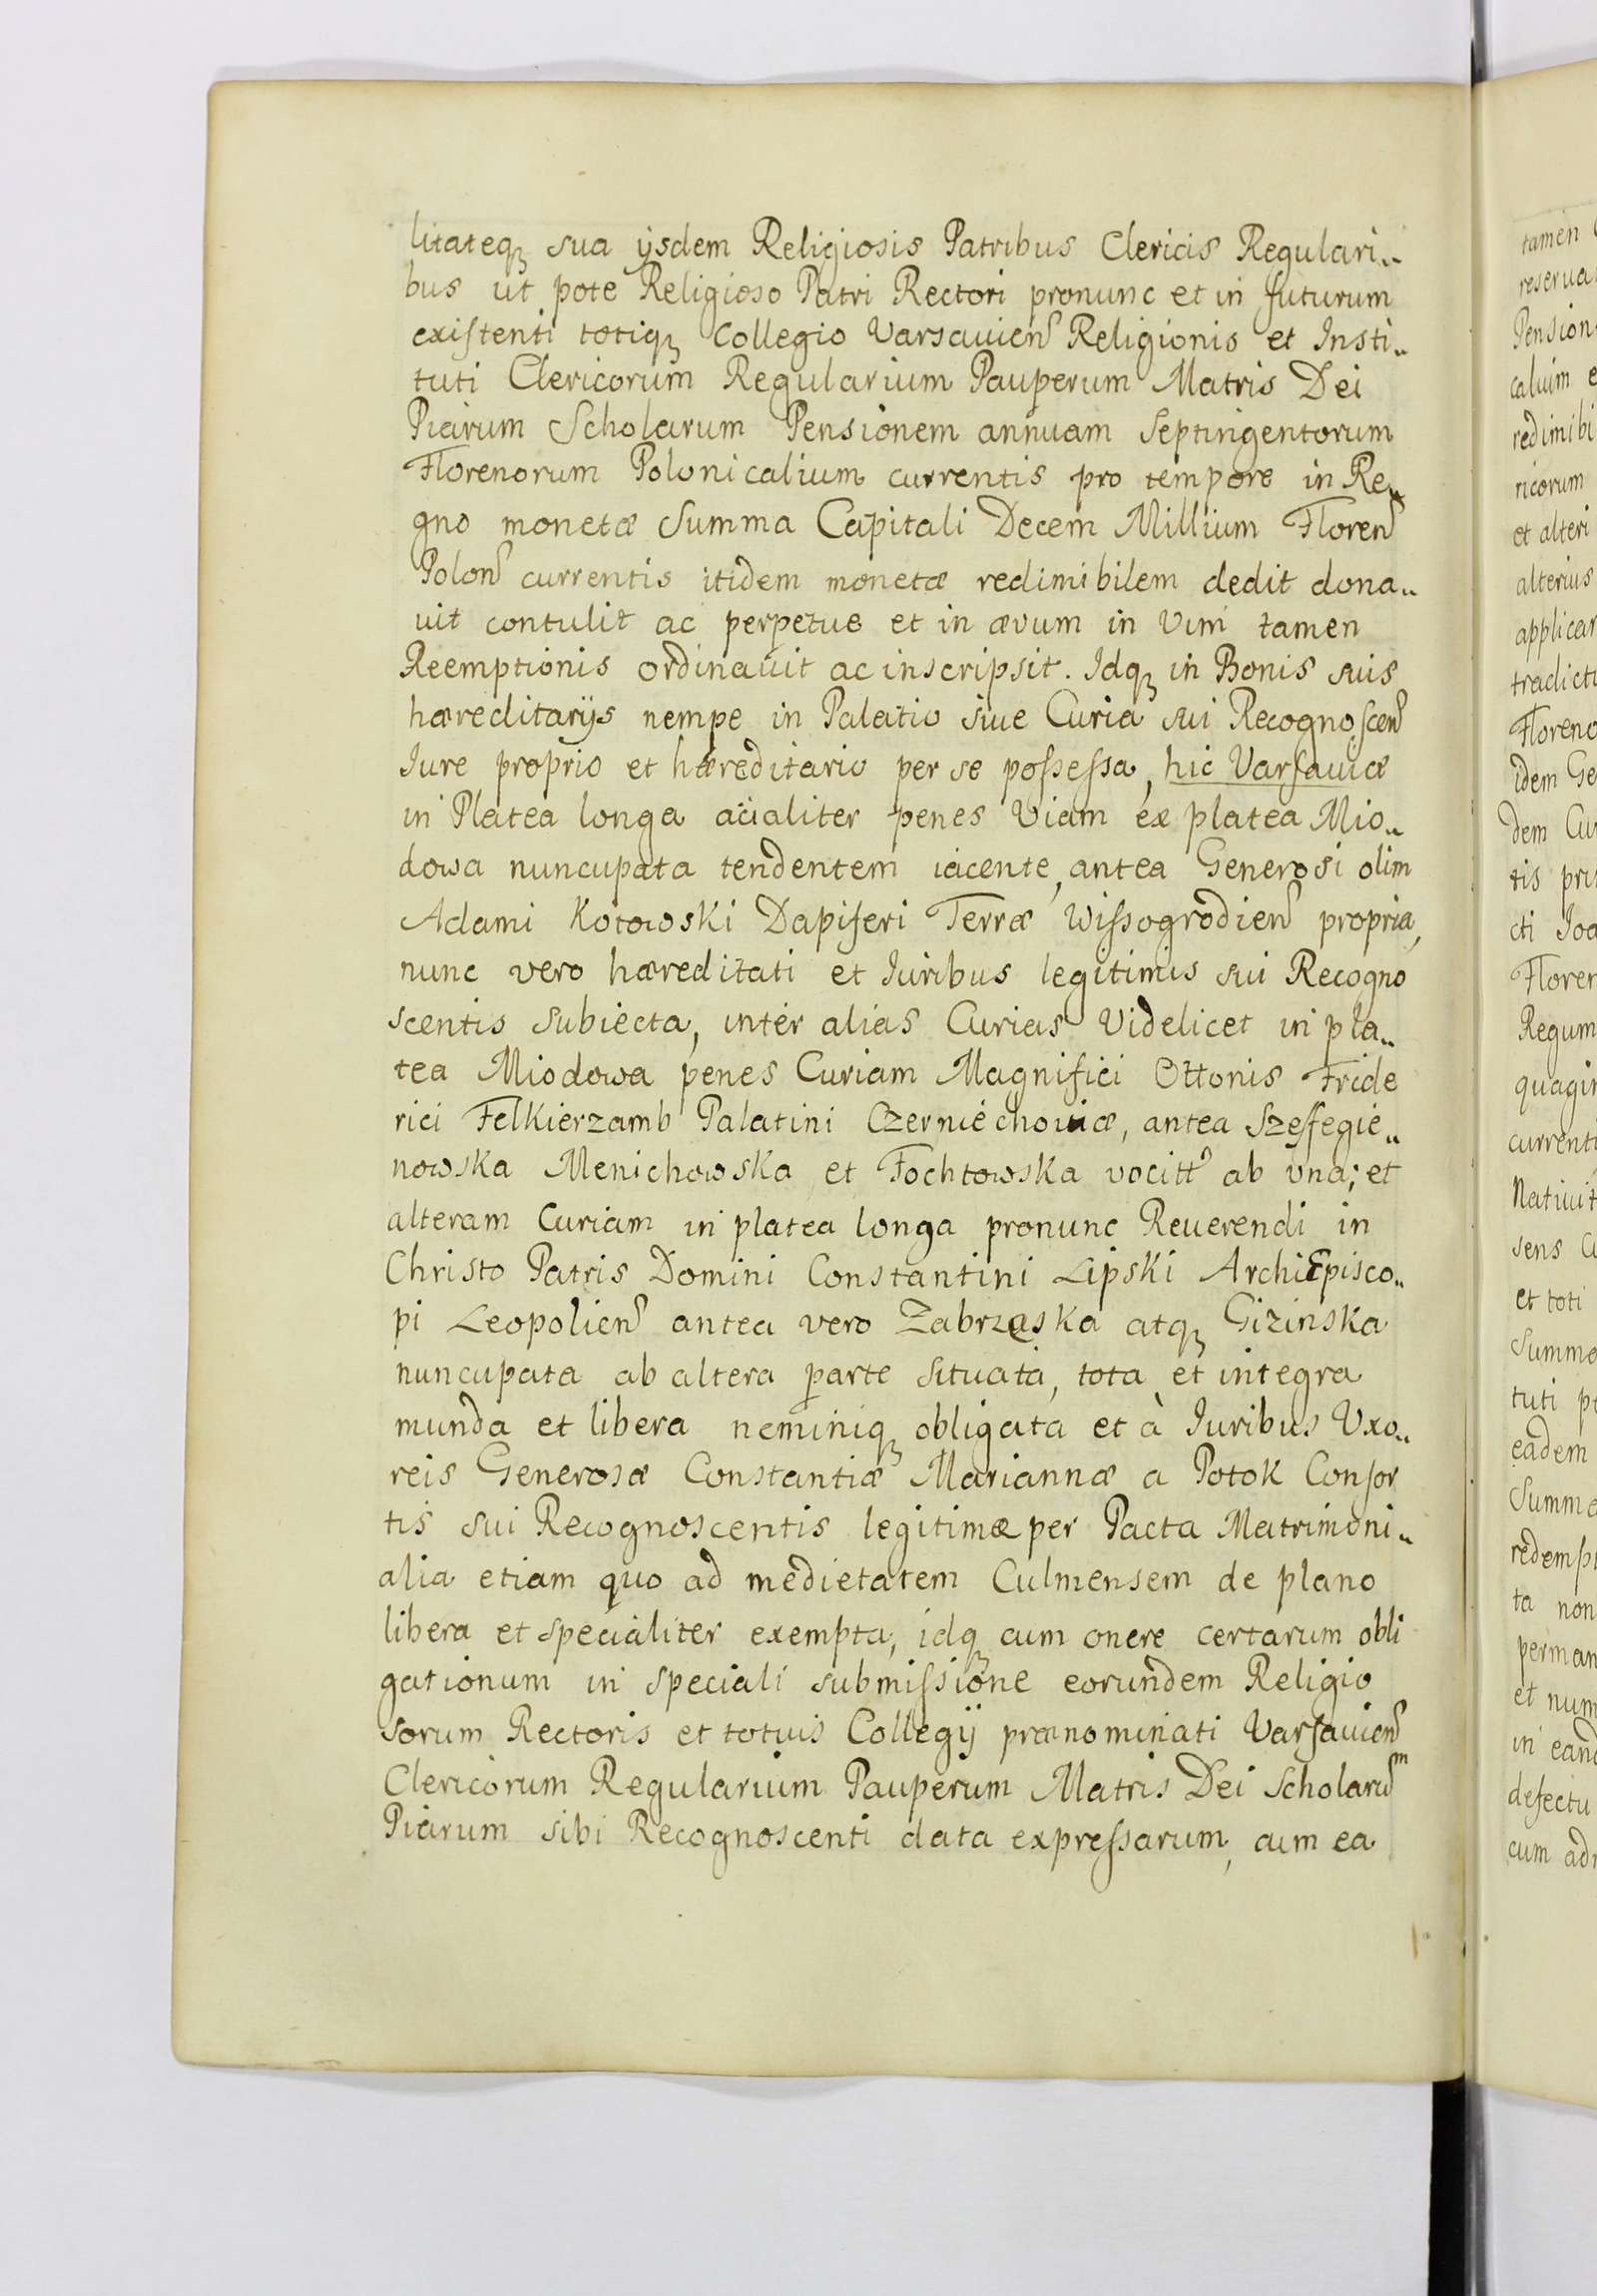 litateq₃ sua ijsdem Religiosis Patribus Clericis Regulari„
bus ut pote Religioso Patri Rectori pronunc et in futurum
existenti totiq₃ Collegio Varsavien Religionis et Insti„
tuti Clericorum Regularium Pauperum Matris Dei
Piarum Scholarum Pensionem annuam Septingentorum
Florenorum Polonicalium currentis pro tempore in Re„
gno monetæ Summa Capitali Decem Millium Floren
Polon currentis itidem monetæ redimibilem dedit dona„
uit contulit ac perpetue et in ævum in Vim tamen
Reemptionis ordinauit ac inscripsit. Idq₃ in Bonis suis
hæreditarijs nempe in Palatio siue Curia sui Recognoscen
Iure proprio et hæreditario per se possessa, hic Varsauiæ
in Platea longa acialiter penes Viam ex platea Mio„
dowa nuncupata tendentem iacente, antea Generosi olim
Adami Kotowski Dapiferi Terræ Wissogrodien propria,
nunc vero hæreditati et Iuribus legitimis sui Recogno
scentis subiecta, inter alias Curias Videlicet in pla„
tea Miodowa penes Curiam Magnifici Ottonis Fride
rici Felkierzamb Palatini Czerniechouiæ, antea Szeffegie„
nowska Menichowska et Fochtowska vocitt ab vna; et
alteram Curiam in platea longa pronunc Reuerendi in
Christo Patris Domini Constantini Lipski ArchiEpisco„
pi Leopolien antea vero Zabrzęska atq₃ Gizinska
nuncupata ab altera parte situata, tota et integra
munda et libera neminiq₃ obligata et à Iuribus Vxo„
reis Generosæ Constantiæ Mariannæ a Potok Consor
tis sui Recognoscentis legitimæ per Pacta Matrimoni„
alia etiam quo ad medietatem Culmensem de plano
libera et specialiter exempta, idq₃ cum onere certarum obli
gationum in speciali submissione eorundem Religio
sorum Rectoris et totius Collegij prænominati Varsauien
Clericorum Regularium Pauperum Matris Dei Scholarum
Piarum sibi Recognoscenti data expressarum, cum ea
tamen
reserua
Pension
caluim e
redimibi
ricorum
et alteri
alterius
applicar
tradictu
Floreno
idem Ge
dem Cur
tis pri
cti Joa
Floren
Regum
quagin
currenti
Natiuit
sens C
et toti
Summa
tuti p
eadem
Summa
redempt
ta non
perman
et num
in eand
defectu
cum ad